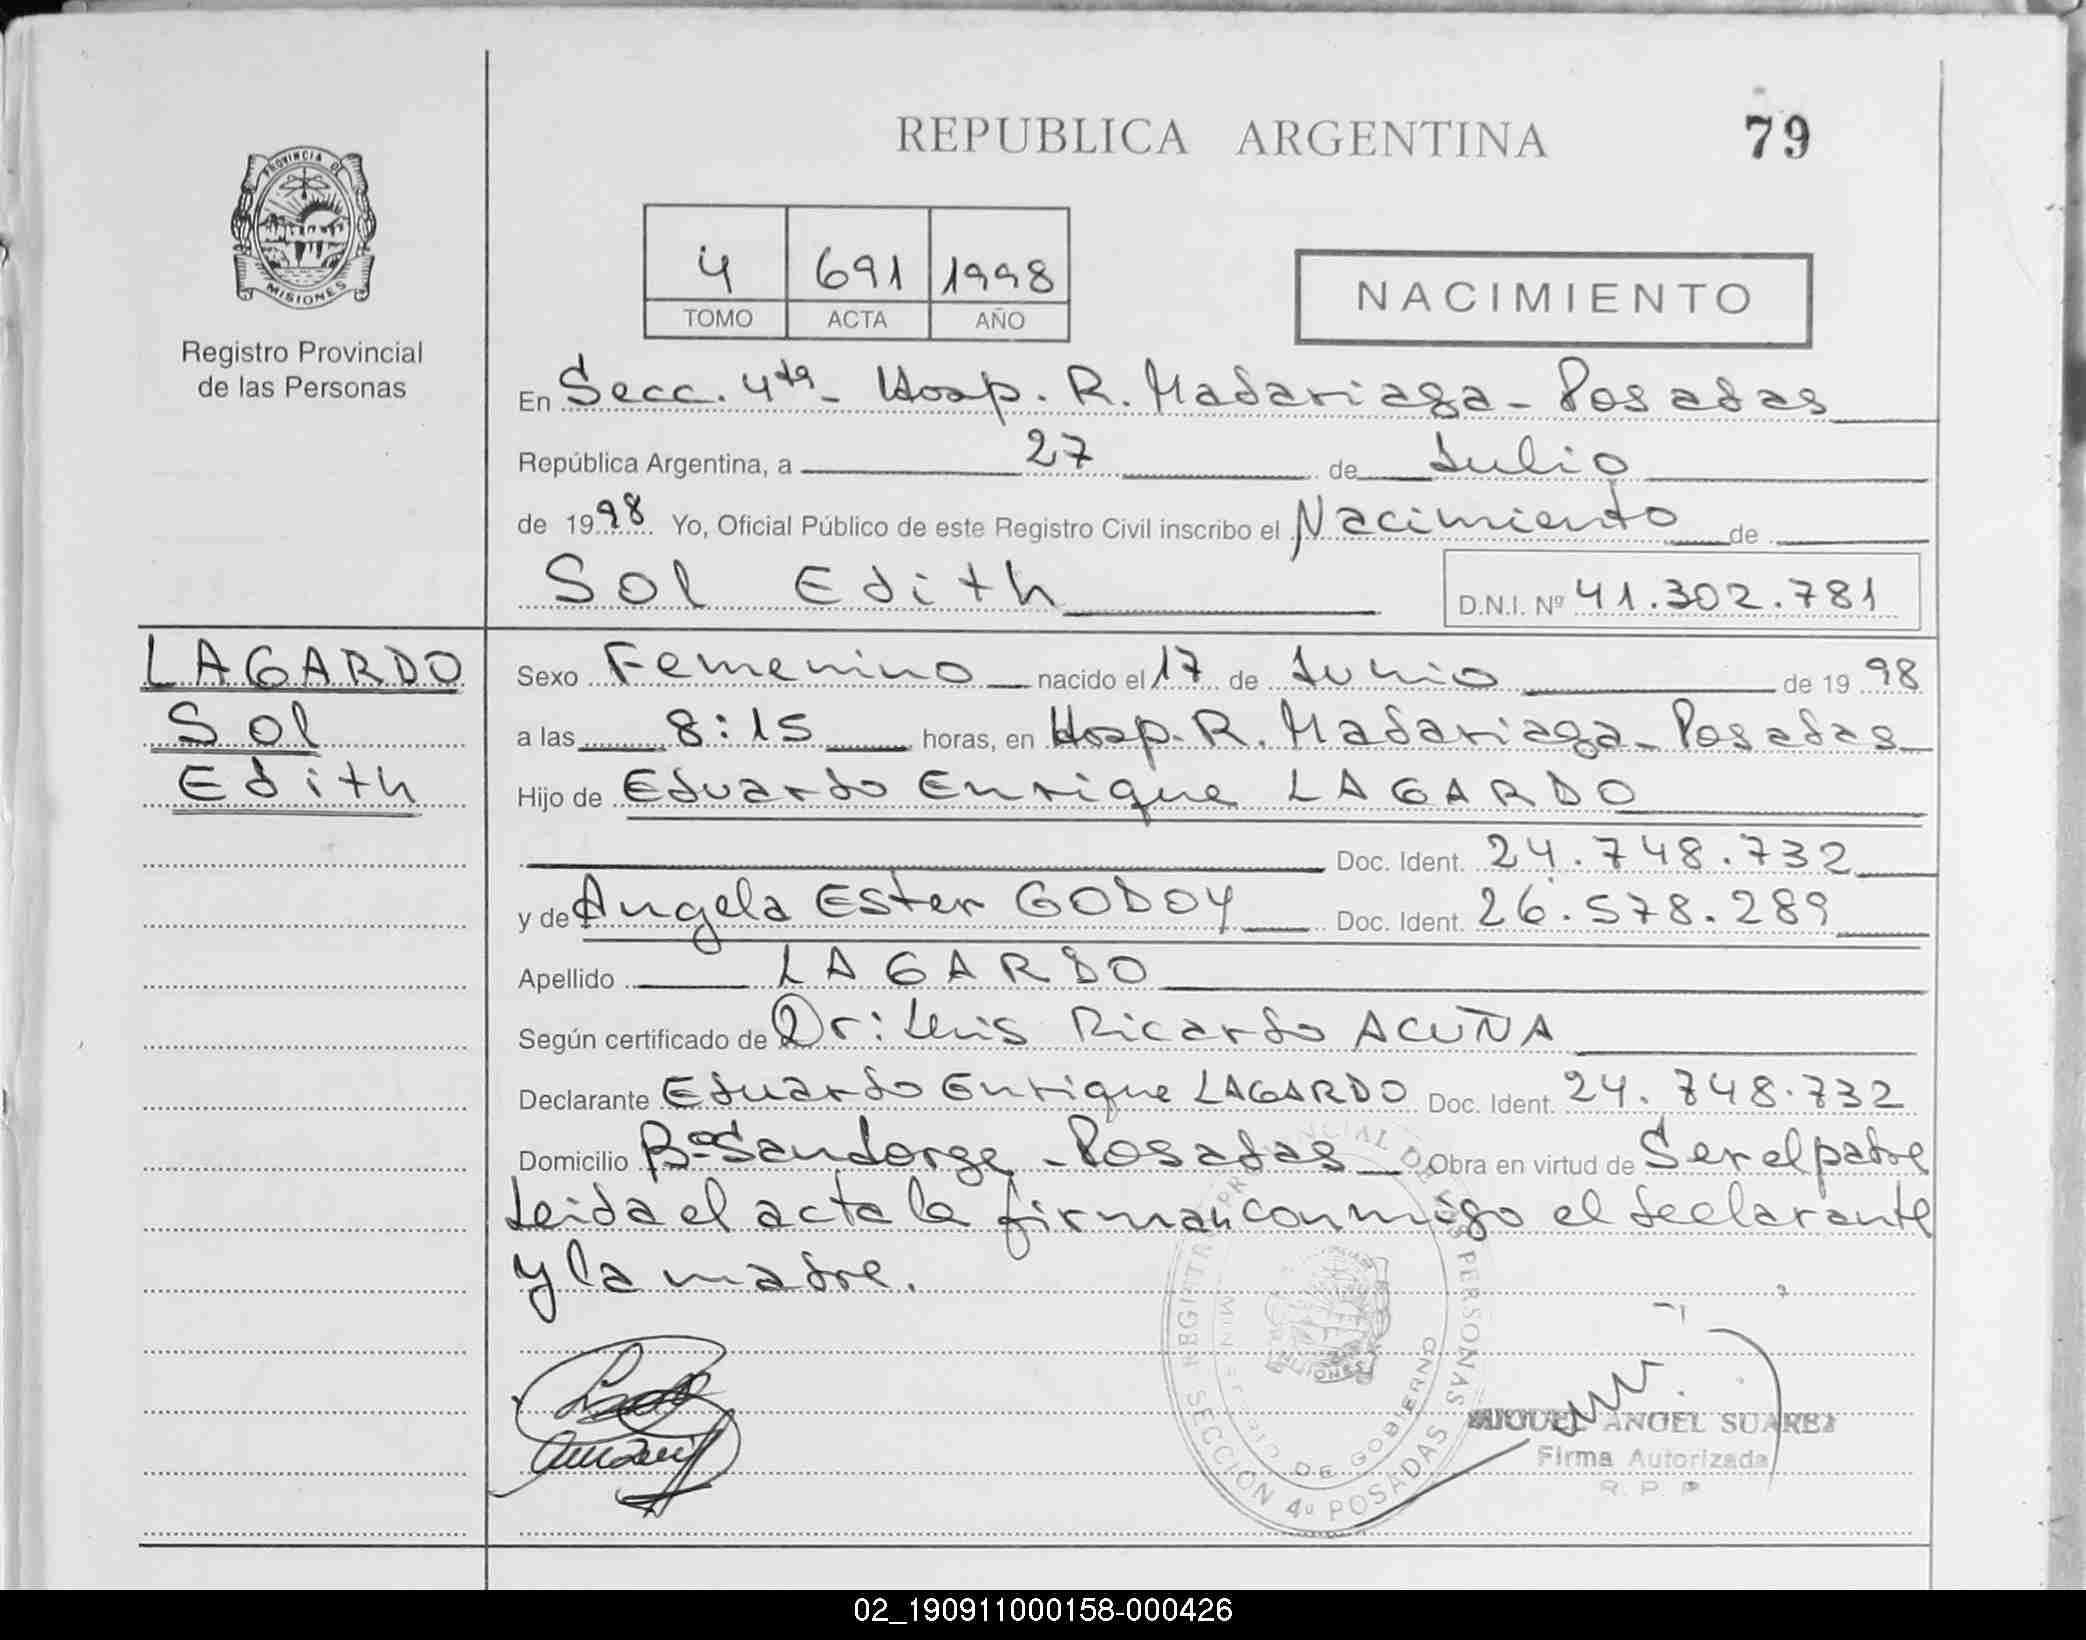 REPUBLICA ARGENTINA
79
PROVINCIA DE
MISIONES
Registro Provincial
de las Personas
4 691 1998
TOMO ACTA AÑO
NACIMIENTO
En Secc. 4ta - Hosp. R. Madariaga - Posadas
República Argentina, a 27 de Julio
de 1998 Yo, Oficial Público de este Registro Civil inscribo el Nacimiento de
Sol Edith D.N.I. Nº 41.302.781
LAGARDO
Sol
Edith
Sexo Femenino nacido el 17 de Junio de 1998
a las 8:15 horas, en Hosp. R. Madariaga - Posadas
Hijo de Eduardo Enrique LAGARDO
Doc. Ident. 24.748.732
y de Angela Ester GODOY Doc. Ident. 26.578.289
Apellido LAGARDO
Según certificado de Dr: Luis Ricardo ACUÑA
Declarante Eduardo Enrique LAGARDO Doc. Ident. 24.748.732
Domicilio Bº San Jorge - Posadas Obra en virtud de Ser el padre
Leida el acta la firman conmigo el declarante
y la madre.
REGISTRO PROVINCIAL DE LAS PERSONAS
MINISTERIO DE GOBIERNO
MISIONES
SECCION 4º POSADAS
MIGUEL ANGEL SUAREZ
Firma Autorizada
R. P. P.
02_190911000158-000426